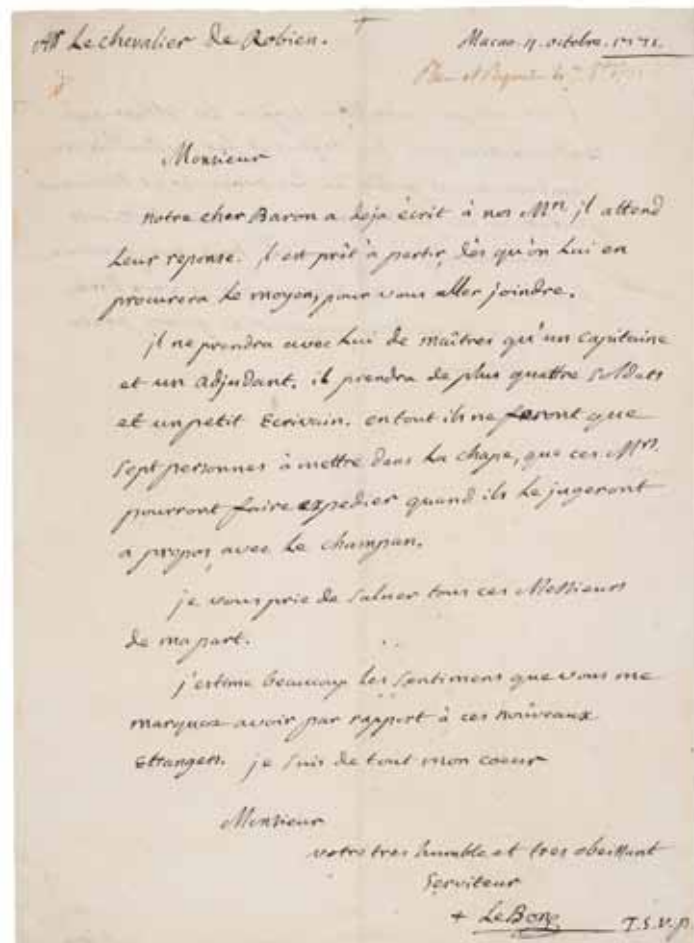 Mr Le chevalier de Robien.
Macao 11. octobre. 1771.
Monsieur
notre cher Baron a deja écrit à nos Mrs il attend
Leur reponse. il est prêt à partir, dès qu'on Lui en
procurera Le moyen, pour vous aller joindre.
il ne prendra avec Lui de maîtres qu'un capitaine
et un adjudant. il prendra de plus quattre soldats
et un petit Ecrivain. en tout ils ne feront que
sept personnes à mettre dans La chape, que ces Mrs.
pourront faire expedier quand ils Le jugeront
a propos, avec Le champan.
je vous prie de saluer tous ces Messieurs
de ma part.
j'estime beaucoup Les sentimens que vous me
marquez avoir par rapport à ces nouveaux
Etrangers. je suis de tout mon coeur
Monsieur
votre tres humble et tres obeissant
serviteur
+ LeBon
T.S.V.p.